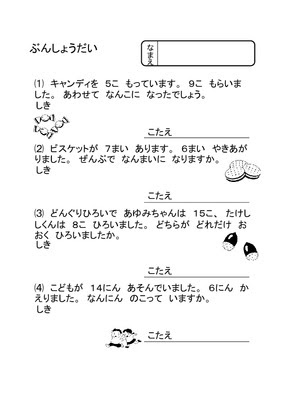 ぶんしょうだい
なまえ
⑴ キャンディを 5こ もっています。 9こ もらいま
した。 あわせて なんこに なったでしょう。
しき
こたえ
⑵ ビスケットが 7まい あります。 6まい やきあが
りました。 ぜんぶで なんまいに なりますか。
しき
こたえ
⑶ どんぐりひろいで あゆみちゃんは 15こ、 たけし
しくんは 8こ ひろいました。 どちらが どれだけ お
おく ひろいましたか。
しき
こたえ
⑷ こどもが 14にん あそんでいました。 6にん か
えりました。 なんにん のこって いますか。
しき
こたえ